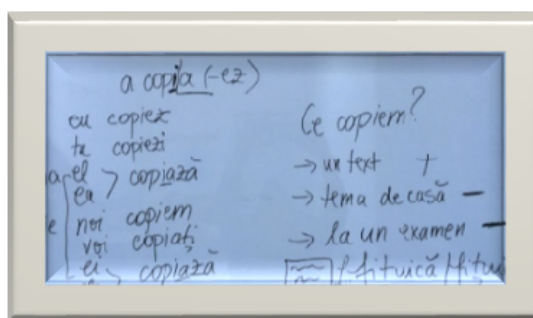 a copia (-ez)
eu copiez
tu copiezi
el
ea > copiază
noi copiem
voi copiați
ei > copiază
Ce copiem?
→ un text +
→ tema de casă –
→ la un examen –
fițuică